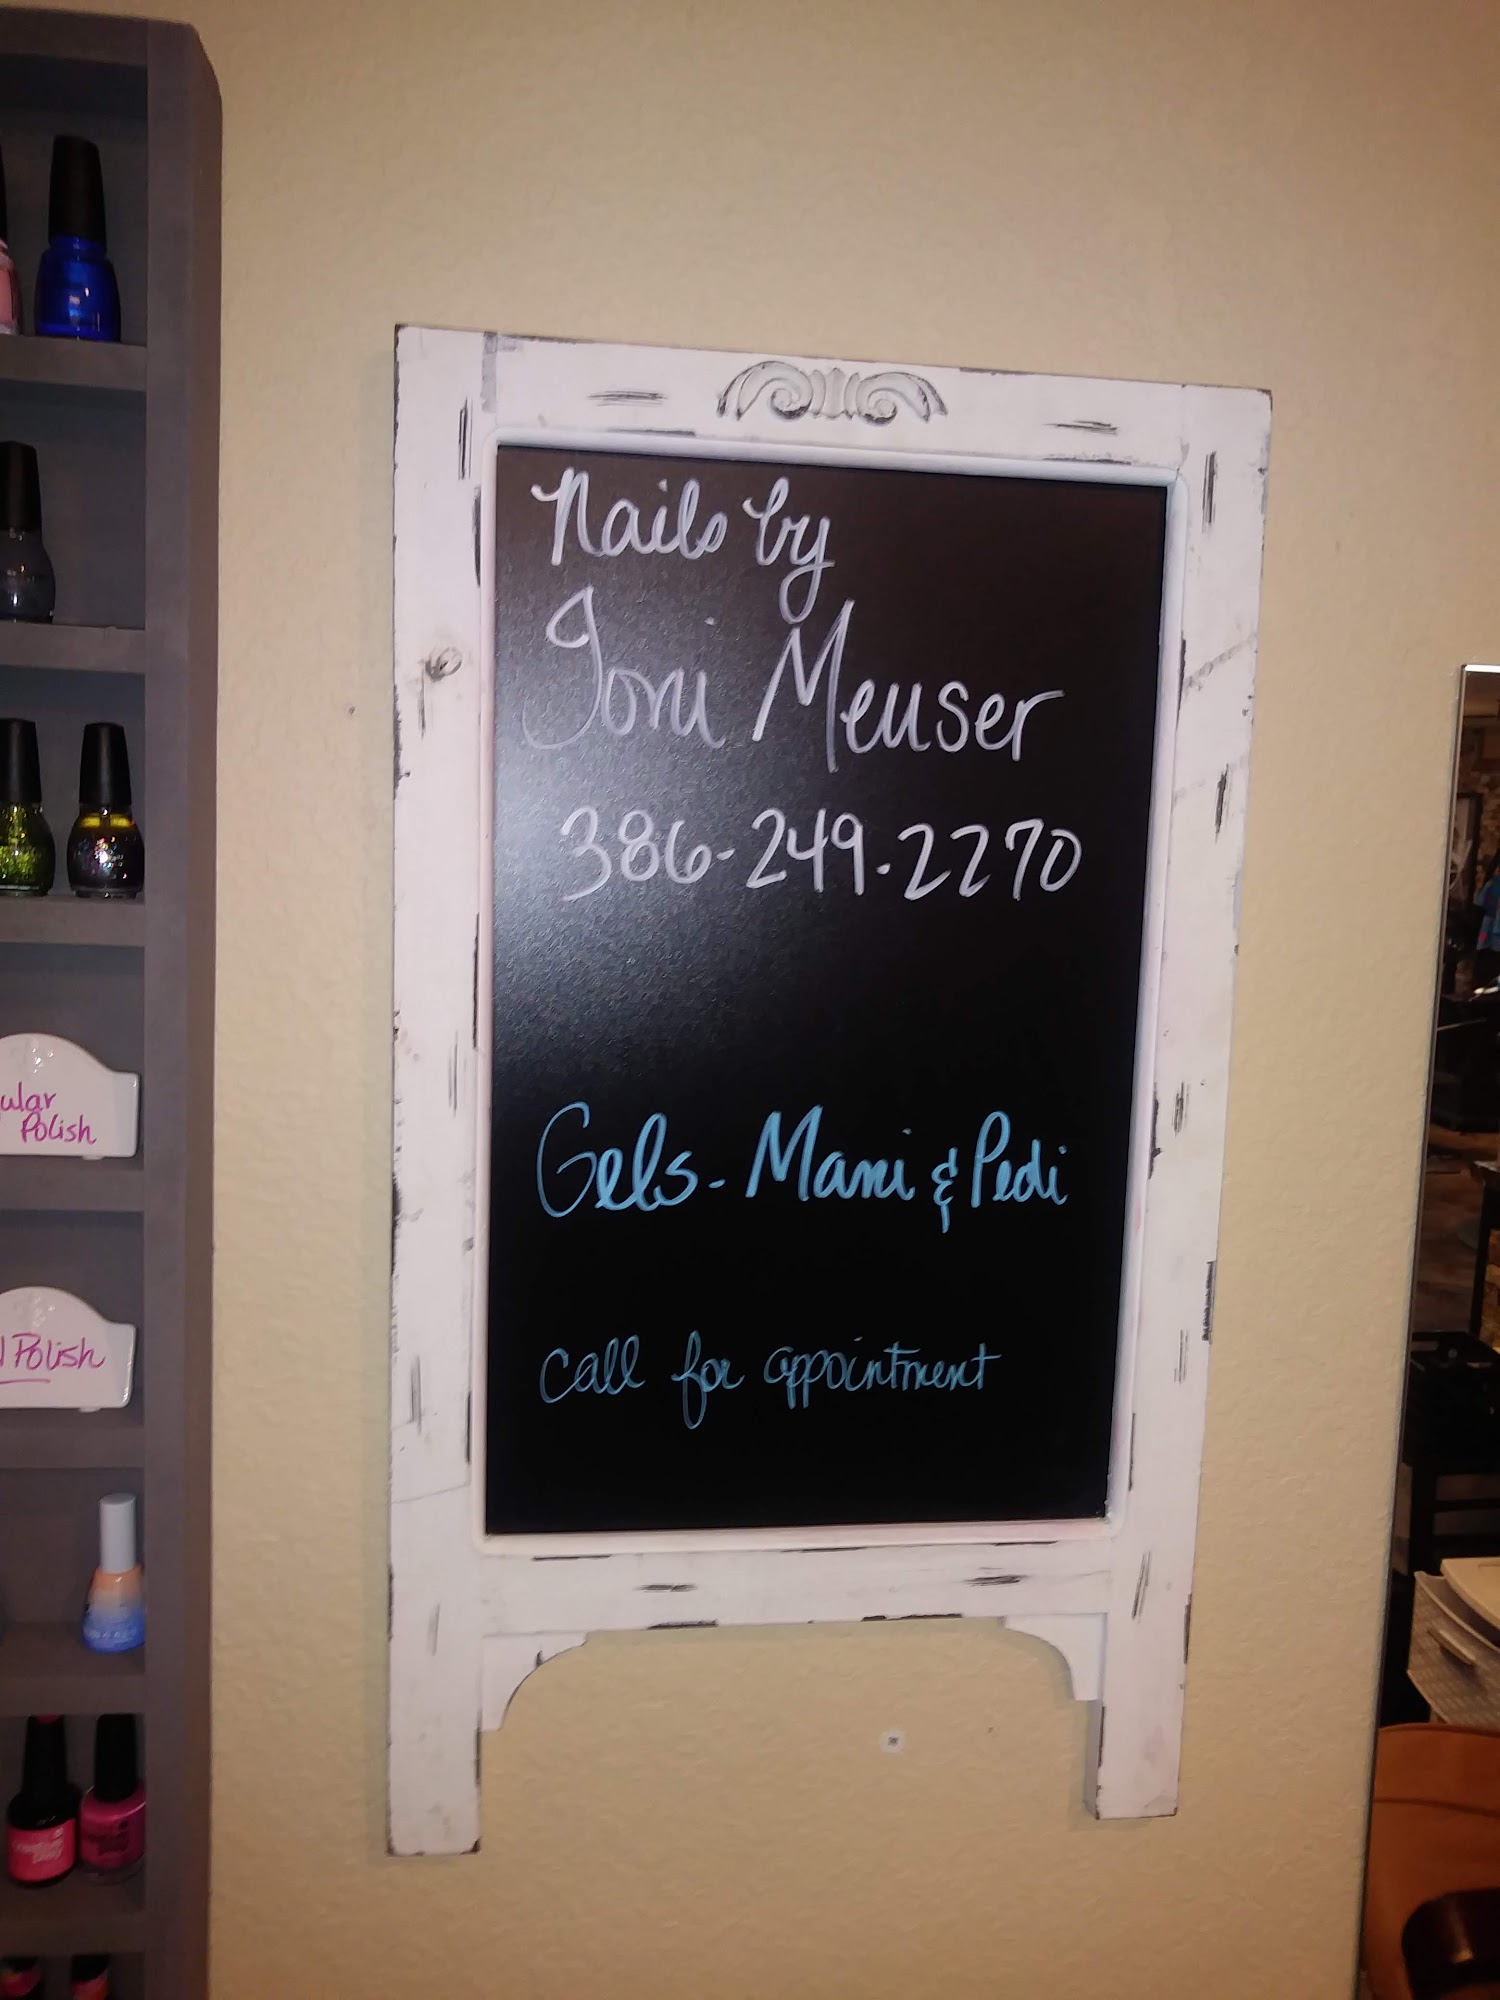 Nails by
Toni Meuser
386-249-2270
Gels - Mani & Pedi
Call for appointment
ular
Polish
Polish